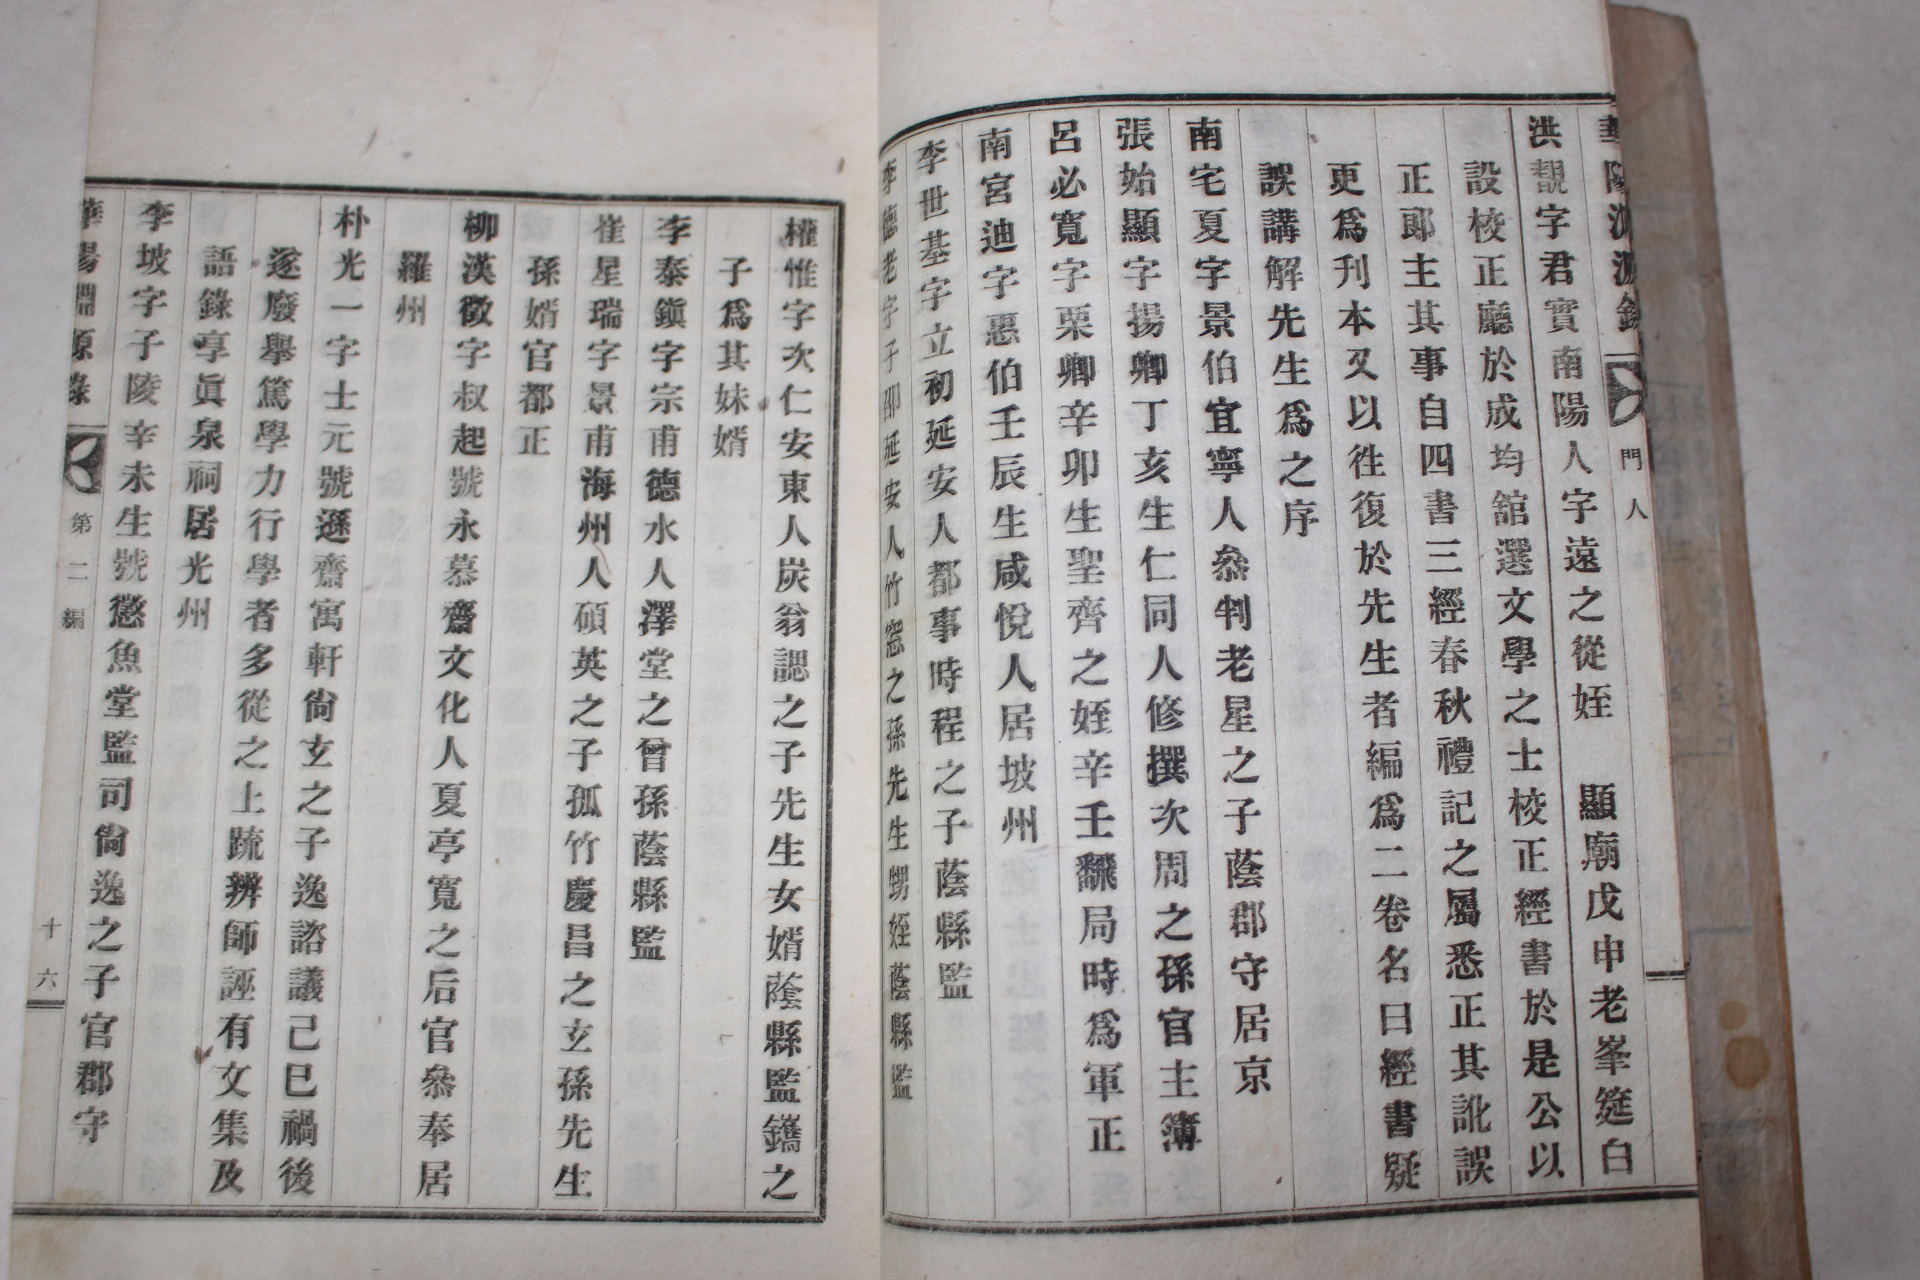 華陽淵源錄 門人
洪覩字君實南陽人字遠之從姪 顯廟戊申老峯筵白
設校正廳於成均舘選文學之士校正經書於是公以
正郞主其事自四書三經春秋禮記之屬悉正其訛誤
更爲刊本又以徃復於先生者編爲二卷名曰經書疑
誤講解先生爲之序
南宅夏字景伯宜寧人叅判老星之子蔭郡守居京
張始顯字揚卿丁亥生仁同人修撰次周之孫官主簿
呂必寬字栗卿辛卯生聖齊之姪辛壬飜局時爲軍正
南宮迪字惪伯壬辰生咸悅人居坡州
李世基字立初延安人都事時程之子蔭縣監
李德老字子卲延安人竹窓之孫先生甥姪蔭縣監
權惟字次仁安東人炭翁諰之子先生女婿蔭縣監鑴之
子爲其妹婿
李泰鎭字宗甫德水人澤堂之曾孫蔭縣監
崔星瑞字景甫海州人碩英之子孤竹慶昌之玄孫先生
孫婿官都正
柳漢徵字叔起號永慕齋文化人夏亭寬之后官叅奉居
羅州
朴光一字士元號遜齋寓軒尙玄之子逸諮議己巳禍後
遂廢擧篤學力行學者多從之上疏辨師誣有文集及
語錄享眞泉祠居光州
李坡字子陵辛未生號懲魚堂監司尙逸之子官郡守
華陽淵源錄 第二編 十六